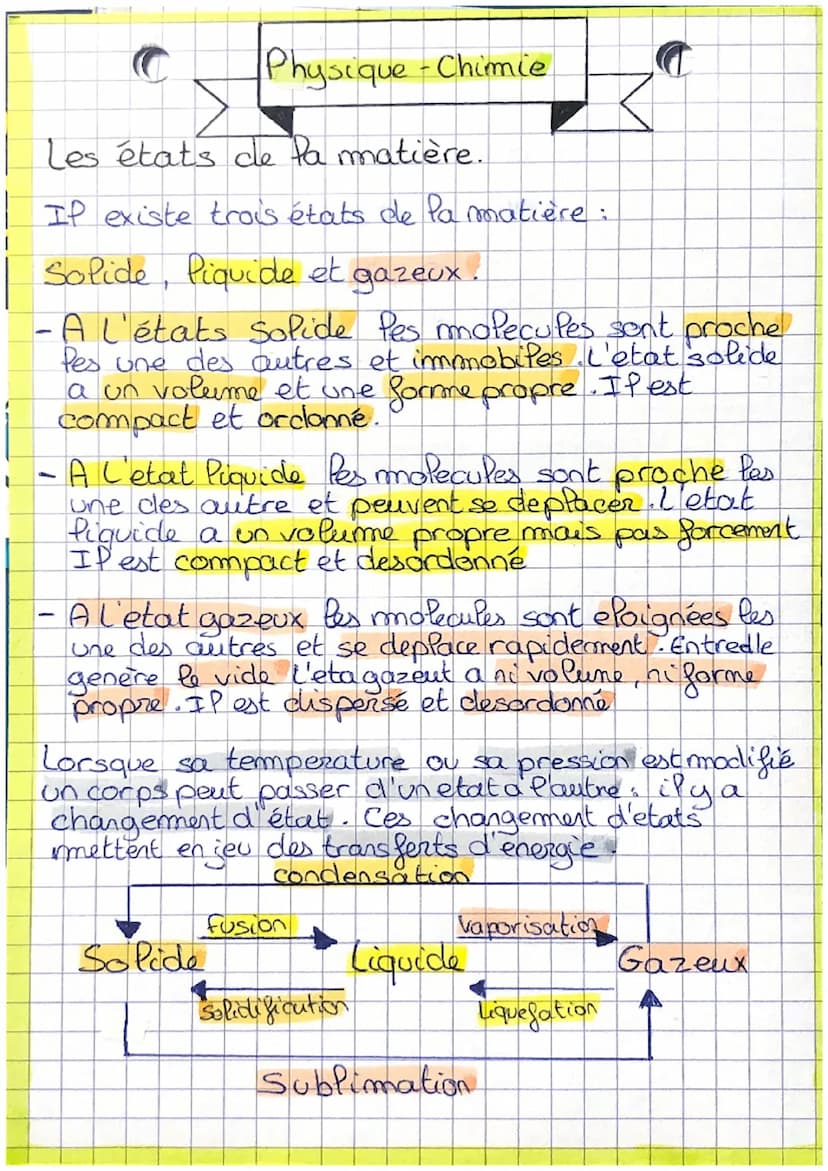 Physique - Chimie
Les états de la matière.
Il existe trois états de la matière :
Solide, liquide et gazeux.
- A L'états Solide les molecules sont proche
les une des autres et immobiles. L'etat solide
a un volume et une forme propre. Il est
compact et ordonné.
- A L'etat liquide les molecules sont proche les
une des autre et peuvent se deplacer. L'etat
liquide a un volume propre mais pas forcement
Il est compact et desordonné
- A l'etat gazeux les molecules sont eloignées les
une des autres et se deplace rapidement. Entredle
genère le vide L'eta gazeut a ni volume, ni forme
propre. Il est dispersé et desordonné
Lorsque sa temperature ou sa pression est modifié
un corps peut passer d'un etat a l'autre : il y a
changement d'état. Ces changement d'etats
mettent en jeu des transferts d'énergie.
condensation
fusion vaporisation
Solide Liquide Gazeux
Solidification Liquefation
Sublimation